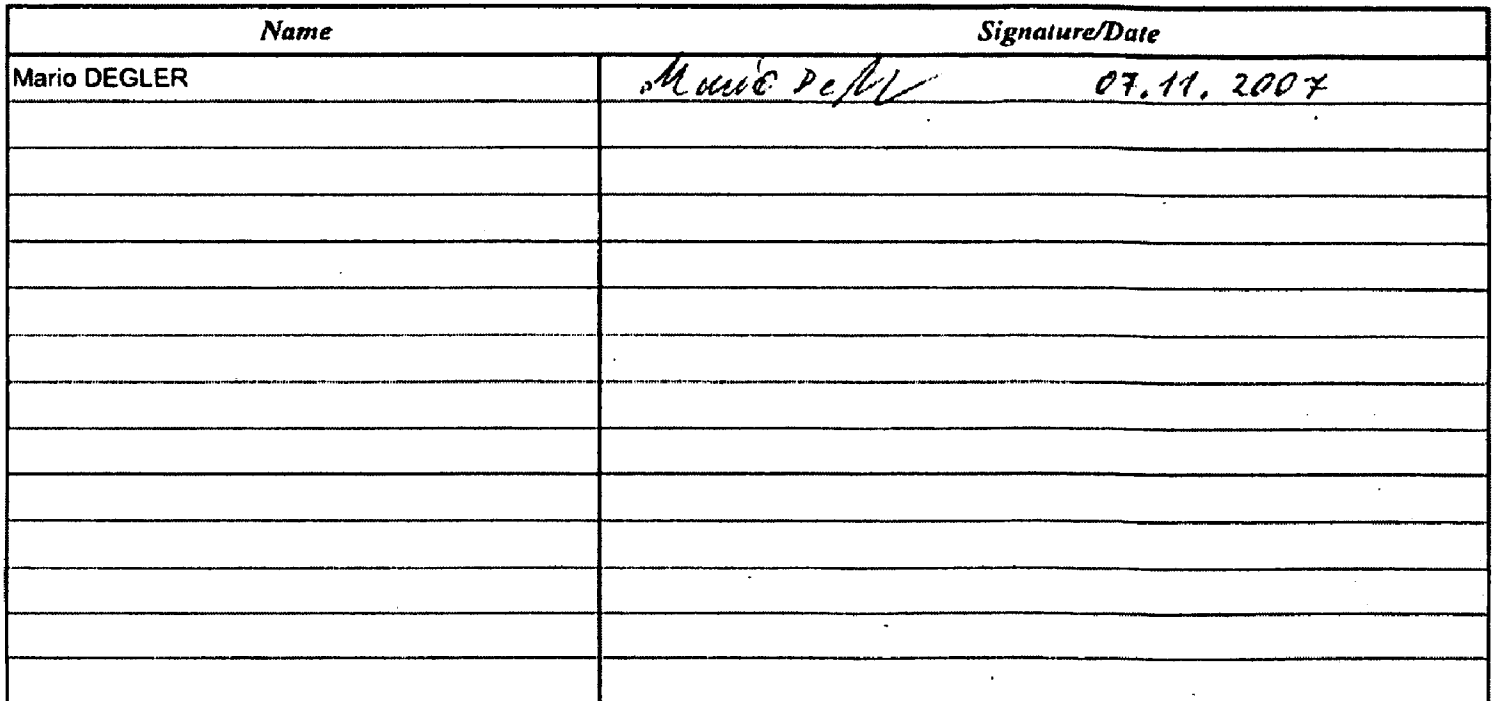 Name Signature/Date
Mario DEGLER Mario Degler 07.11.2007